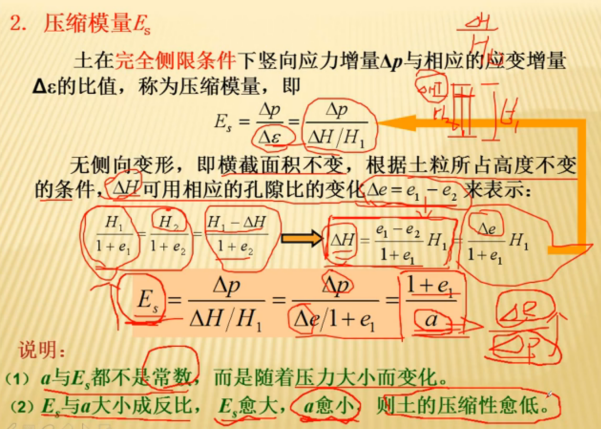 2. 压缩模量Es
土在完全侧限条件下竖向应力增量Δp与相应的应变增量
Δε的比值，称为压缩模量，即
Es = Δp/Δε = Δp/(ΔH/H1)
无侧向变形，即横截面积不变，根据土粒所占高度不变
的条件，ΔH可用相应的孔隙比的变化Δe=e1－e2来表示：
H1/(1+e1) = H2/(1+e2) = (H1－ΔH)/(1+e2) ΔH = (e1－e2)/(1+e1) H1 = Δe/(1+e1) H1
Es = Δp/(ΔH/H1) = Δp/(Δe/1+e1) = (1+e1)/a
ΔH/H1
ΔH
H2
H1
Δe/Δp
说明：
（1）a与Es都不是常数，而是随着压力大小而变化。
（2）Es与a大小成反比，Es愈大，a愈小，则土的压缩性愈低。